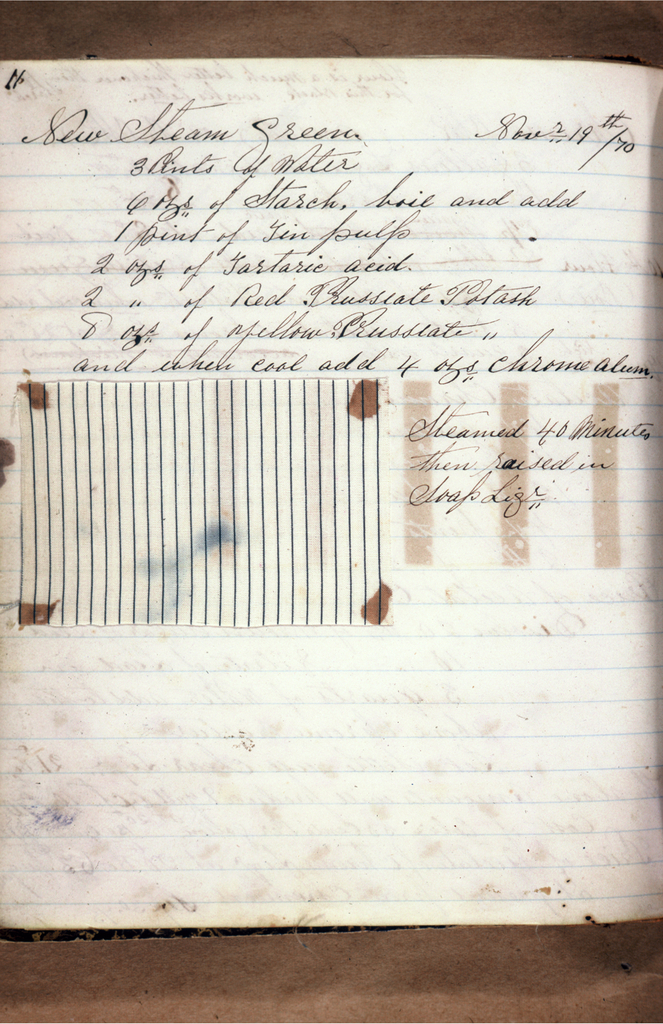 11
New Steam Green. Novr. 19th/70
3 Pints of Water
6 ozs of Starch, boil and add
1 pint of Tin pulp
2 ozs. of Tartaric acid.
2 " of Red Prussiate Potash
8 ozs. of yellow Prussiate "
and when cool add 4 ozs chrome alum.
Steamed 40 Minutes
then raised in
Soap Liqr.